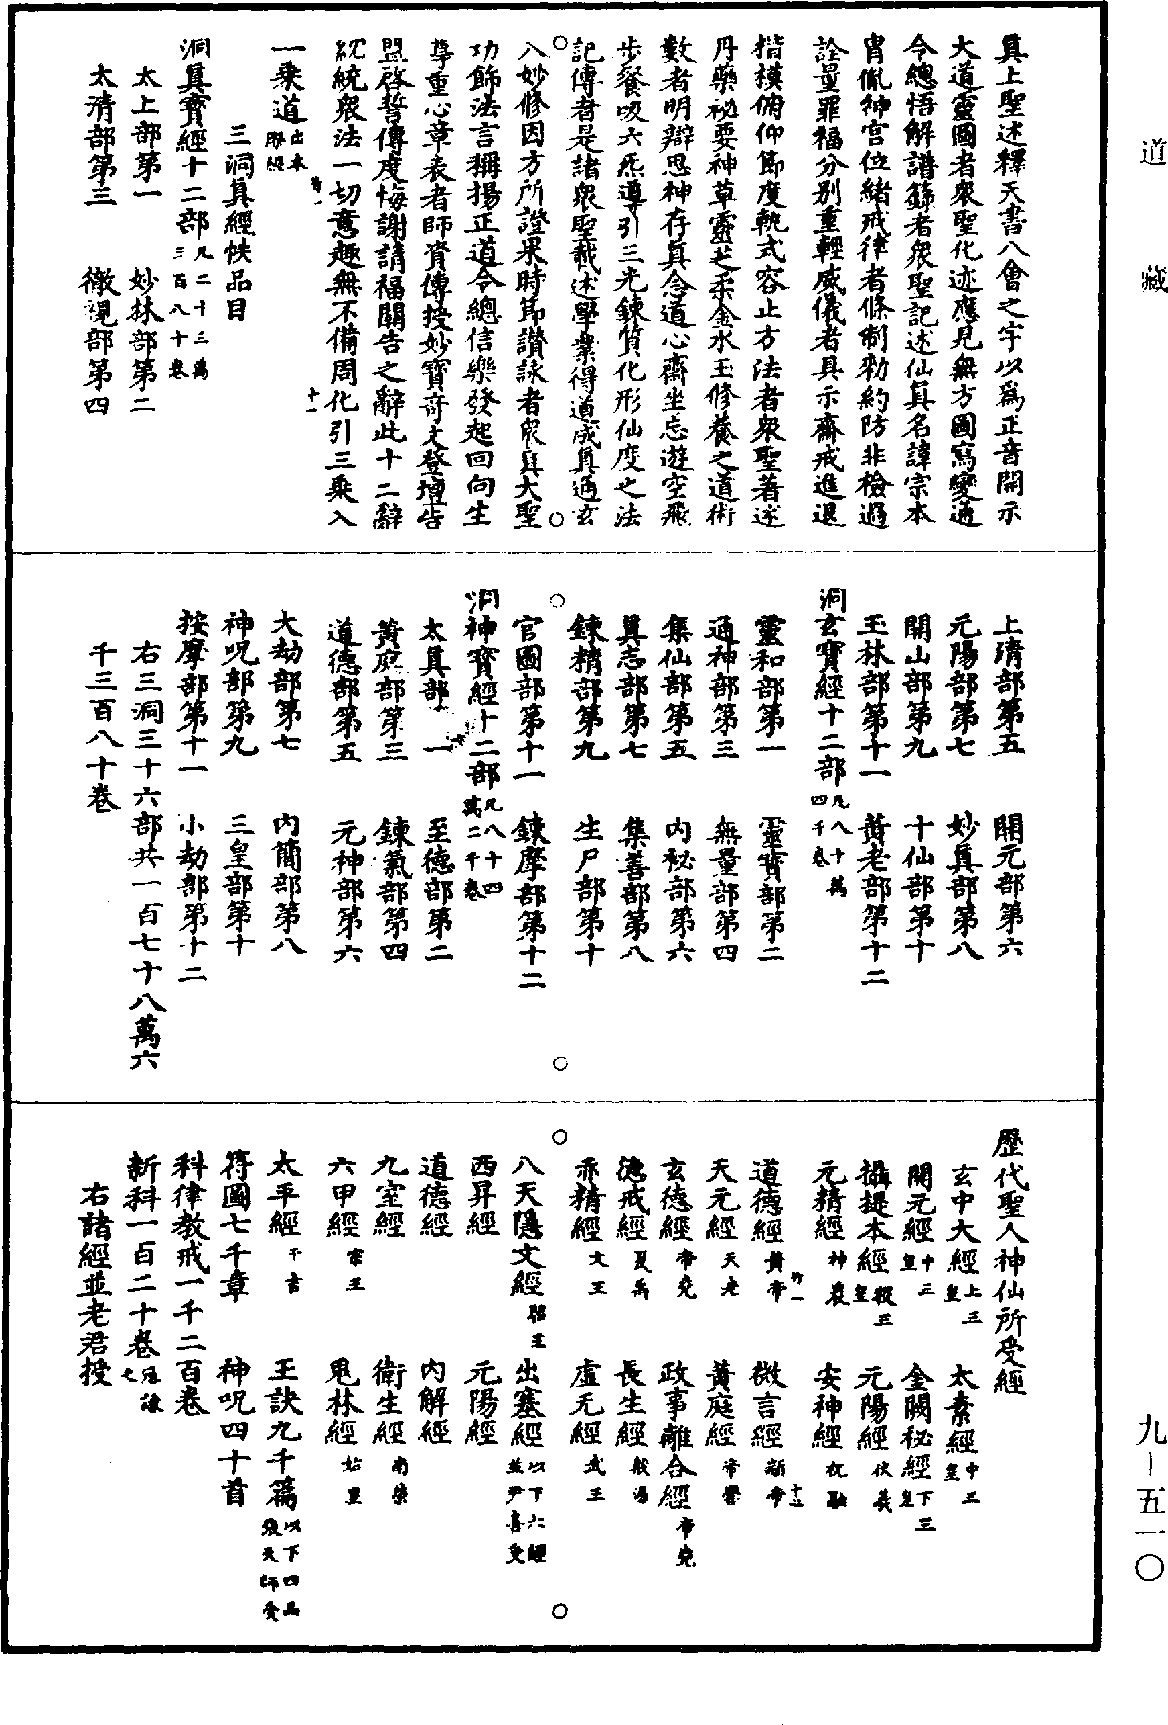 真上聖述釋天書八會之字以爲正音開示
大道靈圖者衆聖化迹應見無方圖寫變通
令總悟解譜籙者衆聖記述仙真名諱宗本
胄胤神宮位緒戒律者條制勑約防非檢過
詮量罪福分別重輕威儀者具示齋戒進退
揩模俯仰節度軌式容止方法者衆聖著述
丹藥祕要神草靈芝柔金水玉修養之道術
數者明辯思神存真念道心齋坐忘遊空飛
步餐吸六炁導引三光鍊質化形仙度之法
記傳者是諸衆聖載述學業得道成真通玄
入妙修因方所證果時節讃詠者衆真大聖
功飾法言稱揚正道令總信樂發起回向生
尊重心章表者師資傳授妙寶奇文登壇告
盟啓誓傳度悔謝請福關告之辭此十二辭
統衆法一切意趣無不備周化引三乘入
一乘道
三洞真經帙品目
洞真寶經十二部凡二十三萬三百八十卷
太上部第一　妙林部第二
太清部第三　徹視部第四
上清部第五　開元部第六
元陽部第七　妙真部第八
開山部第九　十仙部第十
玉林部第十一　黃老部第十二
洞玄寶經十二部凡八十萬四千卷
靈和部第一　靈寶部第二
通神部第三　無量部第四
集仙部第五　内祕部第六
真志部第七　集善部第八
鍊精部第九　生尸部第十
官圖部第十一　鍊摩部第十二
洞神寶經十二部凡八十四萬二千卷
太真部　一　至德部第二
黃庭部第三　鍊氣部第四
道德部第五　元神部第六
大劫部第七　内簡部第八
神呪部第九　三皇部第十
按摩部第十一　小劫部第十二
右三洞三十六部共一百七十八萬六
千三百八十卷
歷代聖人神仙所受經
玄中大經上三皇　太素經中三皇
開元經中三皇　金闕祕經下三皇
攝提本經皇　元陽經伏羲
元精經神農　安神經祝融
道德經黃帝　微言經
天元經天老　黃庭經帝嚳
玄德經帝堯　政事離合經帝堯
戒經夏禹　長生經殷湯
赤精經文王　虛无經武王
八天隱文經昭王　出塞經以下六經並尹喜受
西昇經　元陽經
道德經　内解經
九室經　衛生經南榮
六甲經　鬼林經
太平經于吉　王訣九千篇以下四品張天師受
符圖七千章　神呪四十首
科律教戒一千二百卷
新科一百二十卷
右諸經並老君授
道藏
九—五一〇